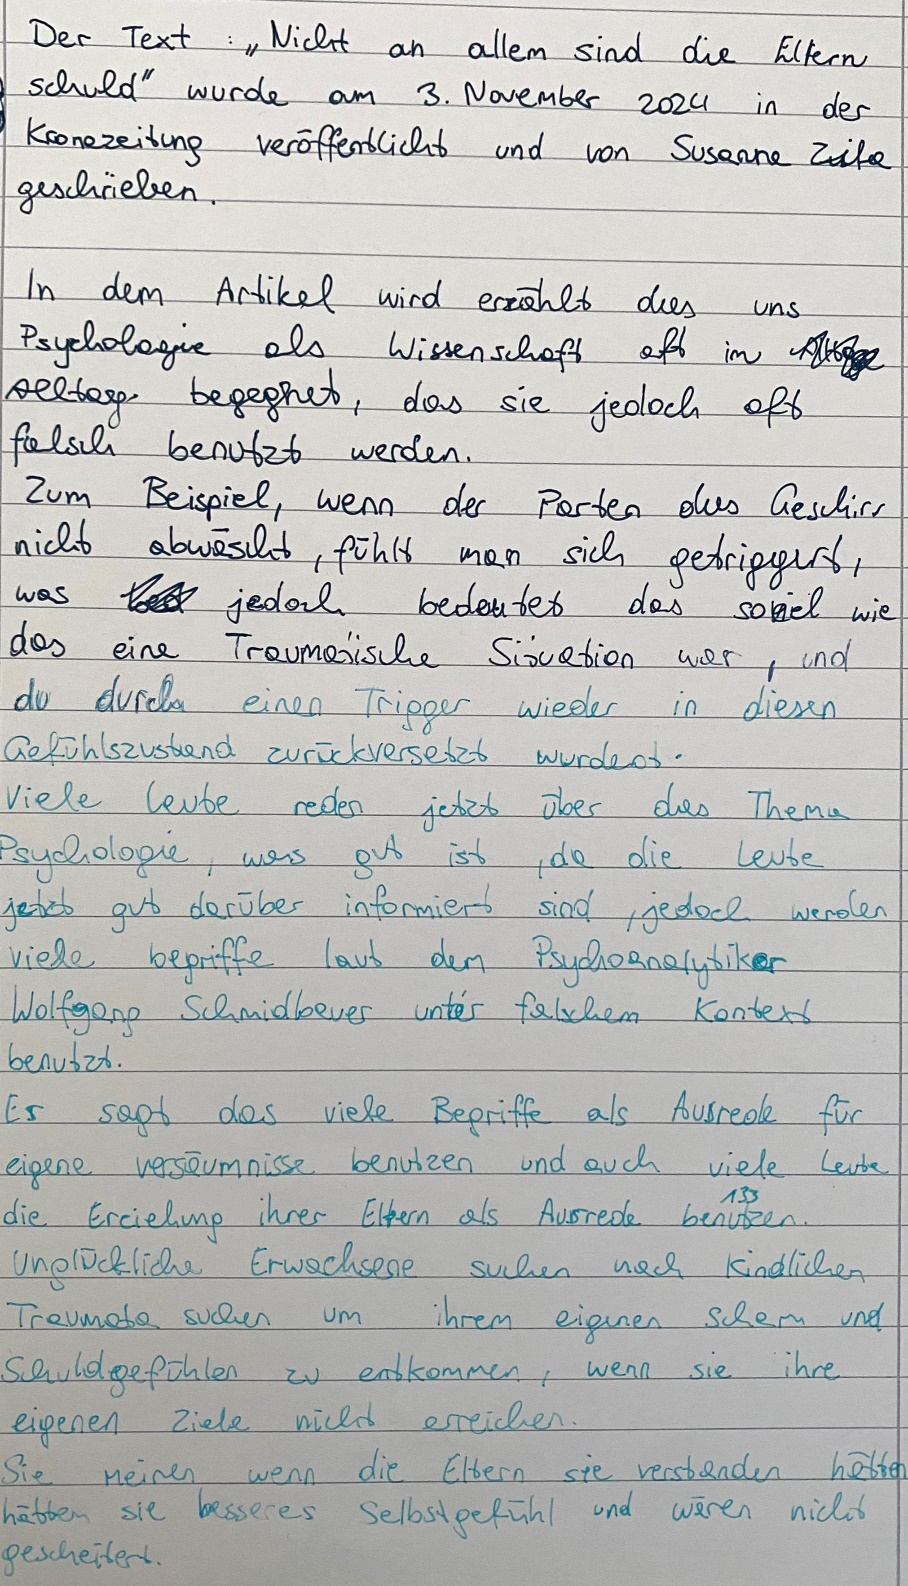 Der Text : „Nicht an allem sind die Eltern
schuld" wurde am 3. November 2024 in der
Kronezeitung veröffentlicht und von Susanne
geschrieben.
In dem Artikel wird erzählt das uns
Psychologie als Wissenschaft oft im
Alltag begegnet, das sie jedoch oft
falsch benutzt werden.
Zum Beispiel, wenn der Parten das Geschirr
nicht abwäscht, fühlt man sich getriggert,
was jedoch bedeutet das soviel wie
das eine Traumatische Situation war, und
du durch einen Trigger wieder in diesen
Gefühlszustand zurückversetzt wurdest.
Viele Leute reden jetzt über das Thema
Psychologie, was gut ist, da die Leute
jetzt gut darüber informiert sind, jedoch werden
viele begriffe laut dem Psychoanalytiker
Wolfgang Schmidbauer unter falschem Kontext
benutzt.
Er sagt das viele Begriffe als Ausrede für
eigene versäumnisse benutzen und auch viele Leute
die Erziehung ihrer Eltern als Ausrede benutzen.
133
Unglückliche Erwachsene suchen nach Kindlichen
Traumata suchen um ihrem eigenen Scham und
Schuldgefühlen zu entkommen, wenn sie ihre
eigenen Ziele nicht erreichen.
Sie meinen wenn die Eltern sie verstanden hätten
hätten sie besseres Selbstgefühl und wären nicht
gescheitert.